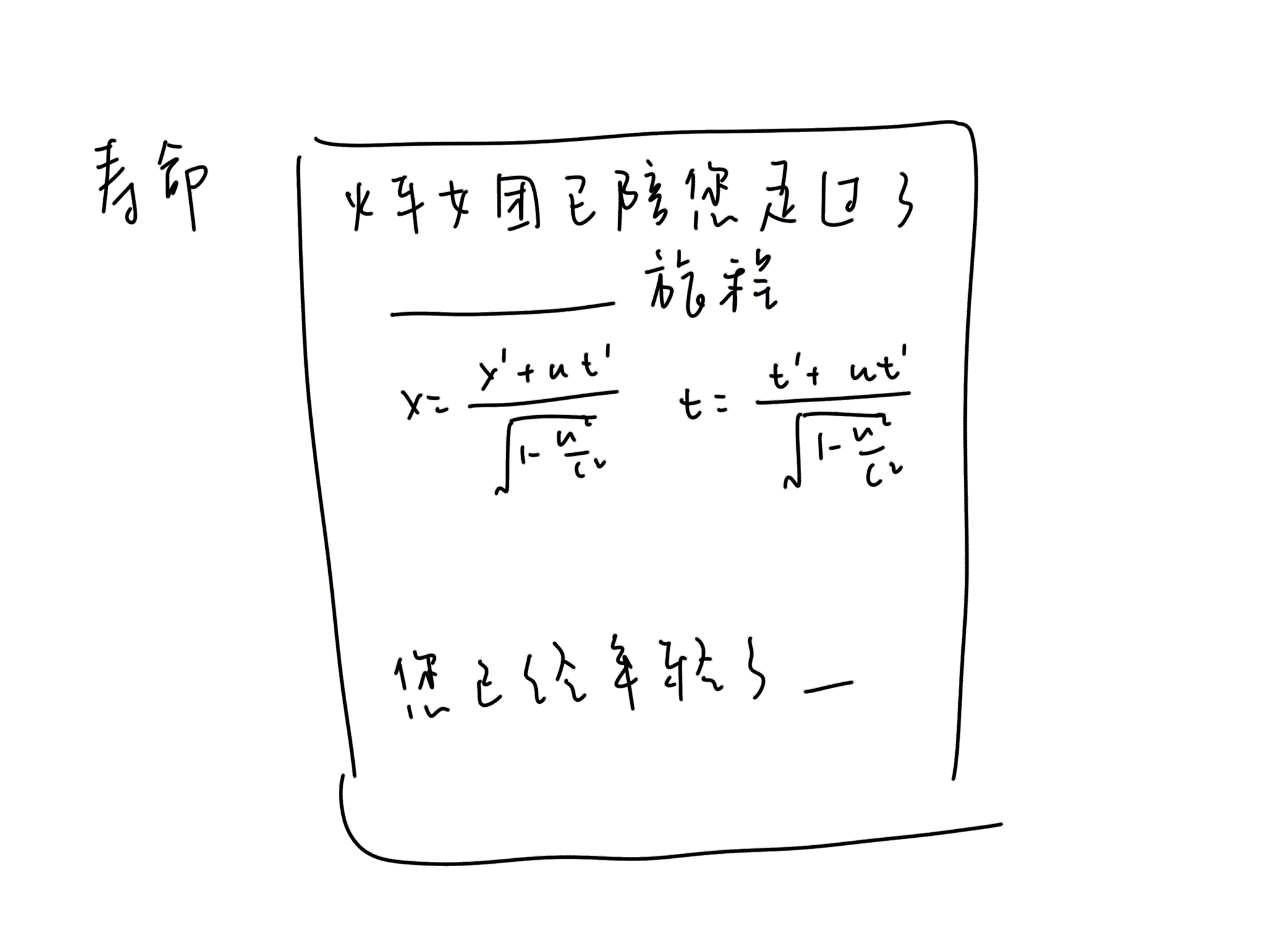 寿命
火车女团已陪您走过了
______ 旅程
x = \frac{x' + ut'}{\sqrt{1 - \frac{u^2}{c^2}}} t = \frac{t' + ut'}{\sqrt{1 - \frac{u^2}{c^2}}}
您已经年轻了 __